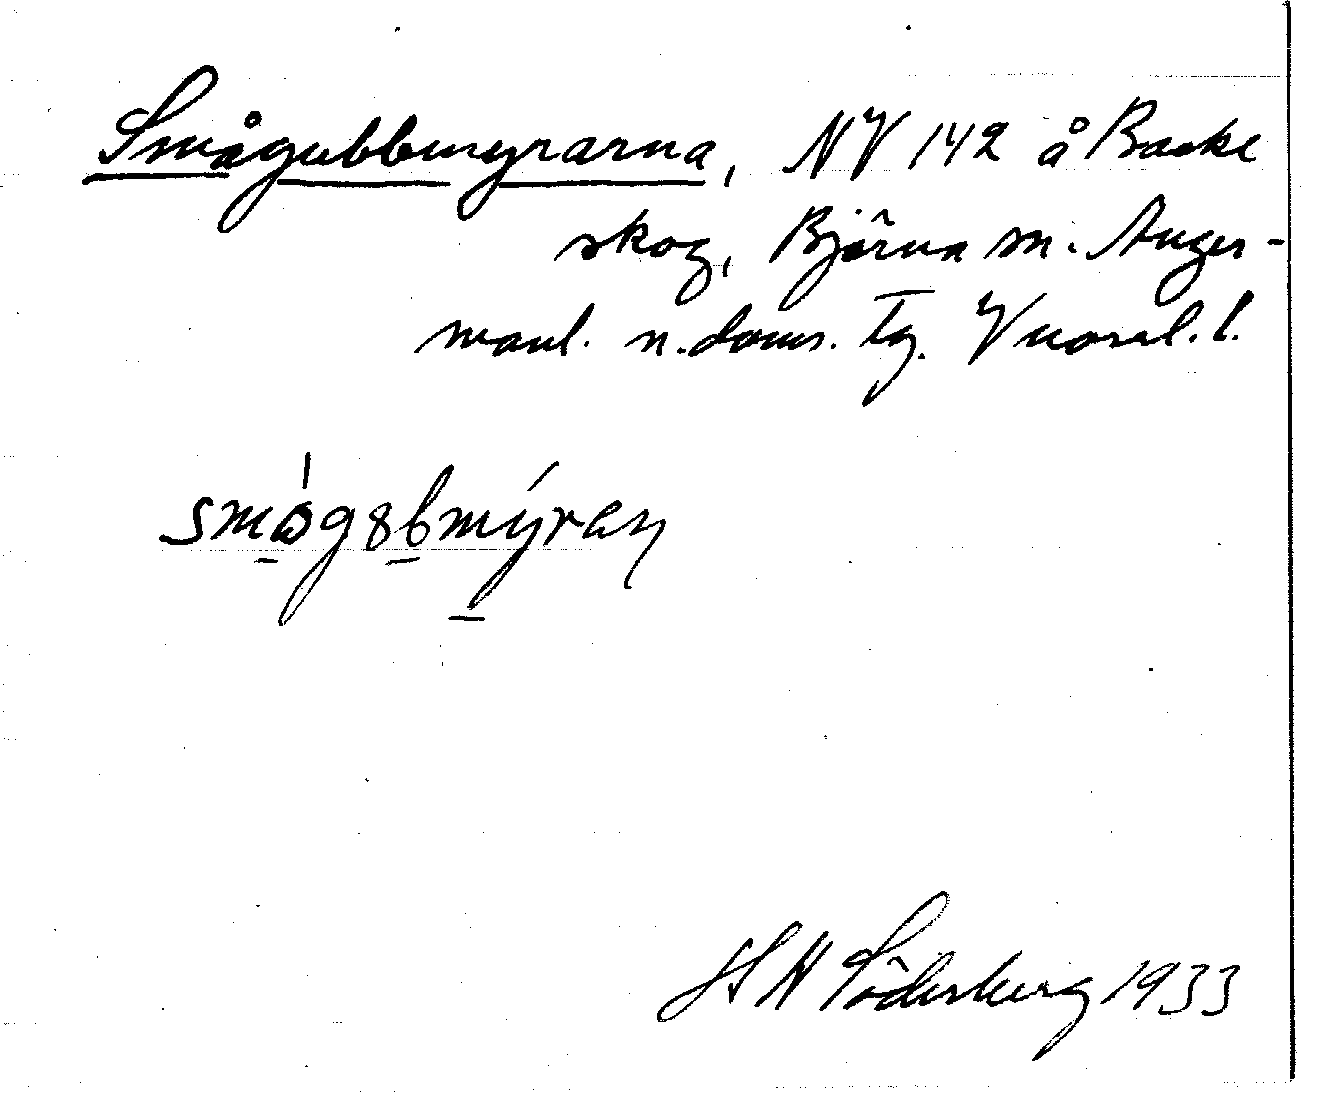 Smågubbmyrarna, NV 142 å Backe
skog, Björna sn. Ånger-
manl. n. doms. Tg. Vuoxal. l.
smógȣbmýren
H N Söderberg 1933